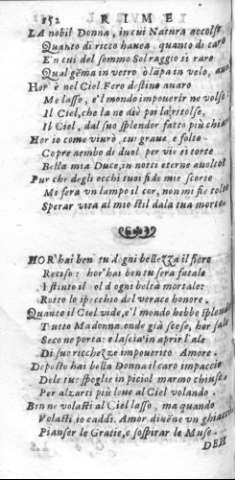 152 RIME
LA nobil Donna, in cui Natura accolse
Quanto di ricco havea, quanto di caro
E'n cui del sommo Sol raggio sì raro
Qual gẽma in vetro, o lapa in velo,
Hor' è nel Ciel. Fero destino avaro
Me lasso, e'l mondo impoverir ne volse
Il Ciel, che la ne diè poi la ritolse,
Il Ciel, dal suo splendor fatto più chiaro
Hor io come vivrò, cui grave e folto
Copre nembo di duol per vie sì torte
Bella mia Duce, in notti eterne avolto?
Pur che degli occhi tuoi fide mie scorte
Me fera un lampo il cor, non mi fie tolto
Sperar vita al mio stil dala tua morte
HOR' hai ben tu d'ogni bellezza il fiore
Reciso: hor' hai ben tu sera fatale
Estinto il Sol d'ogni beltà mortale:
Rotto lo specchio del verace honore.
Quanto il Ciel vide, e'l mondo hebbe splendore
Tutto Madonna, onde già scese, hor sale
Seco ne porta: e lascia in aprir l'ale
Di sue ricchezze impoverito Amore.
Deposto hai bella Donna il caro impaccio
Dele tue spoglie in piciol marmo chiuse
Per alzarti più lieve al Ciel volando.
Ben ne volasti al Ciel lasso, ma quando
Volasti, io caddi. Amor divẽne un ghiaccio
Pianser le Gratie, e sospirar le Muse.